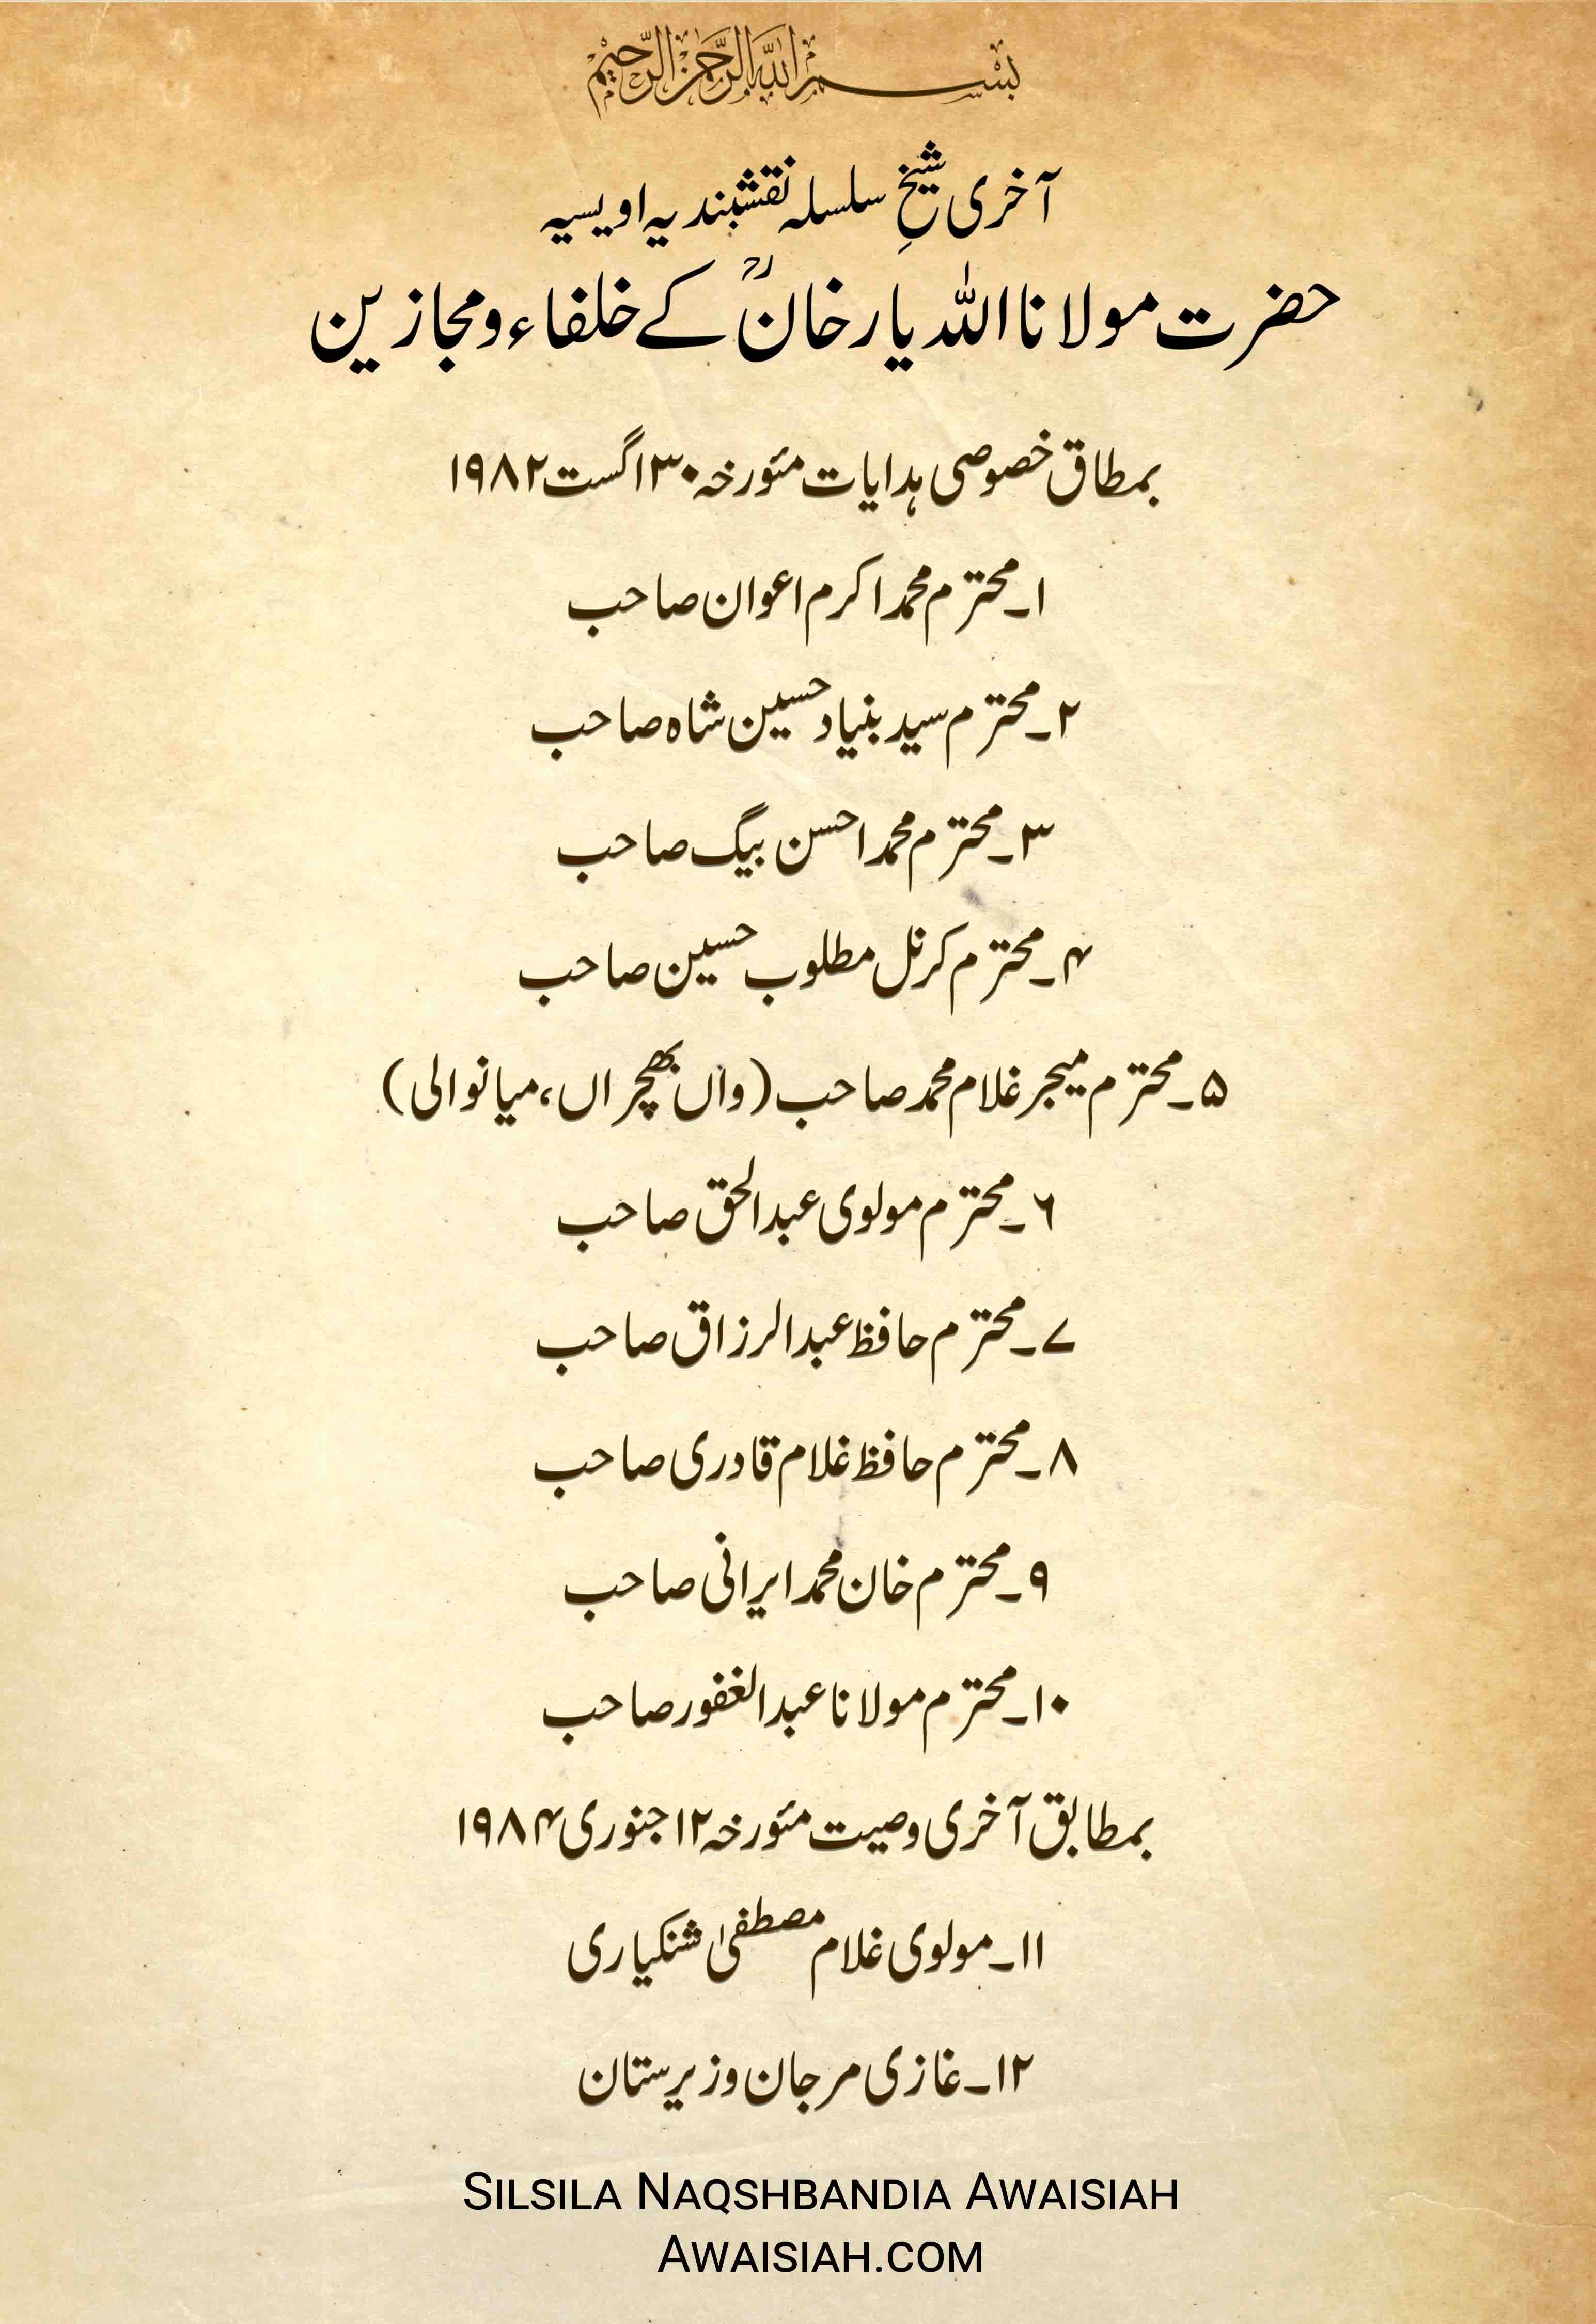 بسم اللہ الرحمن الرحیم
آخری شیخِ سلسلہ نقشبندیہ اویسیہ
حضرت مولانا اللہ یار خانؒ کے خلفاء و مجازین
بمطاق خصوصی ہدایات مئورخہ ۳۰ اگست ۱۹۸۲
۱۔ محترم محمد اکرم اعوان صاحب
۲۔ محترم سید بنیاد حسین شاہ صاحب
۳۔ محترم محمد احسن بیگ صاحب
۴۔ محترم کرنل مطلوب حسین صاحب
۵۔ محترم میجر غلام محمد صاحب (واں بھچراں، میانوالی)
۶۔ محترم مولوی عبدالحق صاحب
۷۔ محترم حافظ عبدالرزاق صاحب
۸۔ محترم حافظ غلام قادری صاحب
۹۔ محترم خان محمد ایرانی صاحب
۱۰۔ محترم مولانا عبدالغفور صاحب
بمطابق آخری وصیت مئورخہ ۱۲ جنوری ۱۹۸۴
۱۱۔ مولوی غلام مصطفیٰ شنکیاری
۱۲۔ غازی مرجان وزیرستان
SILSILA NAQSHBANDIA AWAISIAH
AWAISIAH.COM